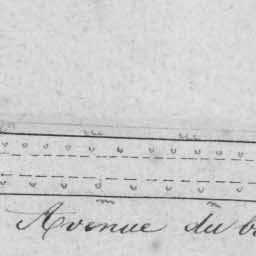 Avenue du